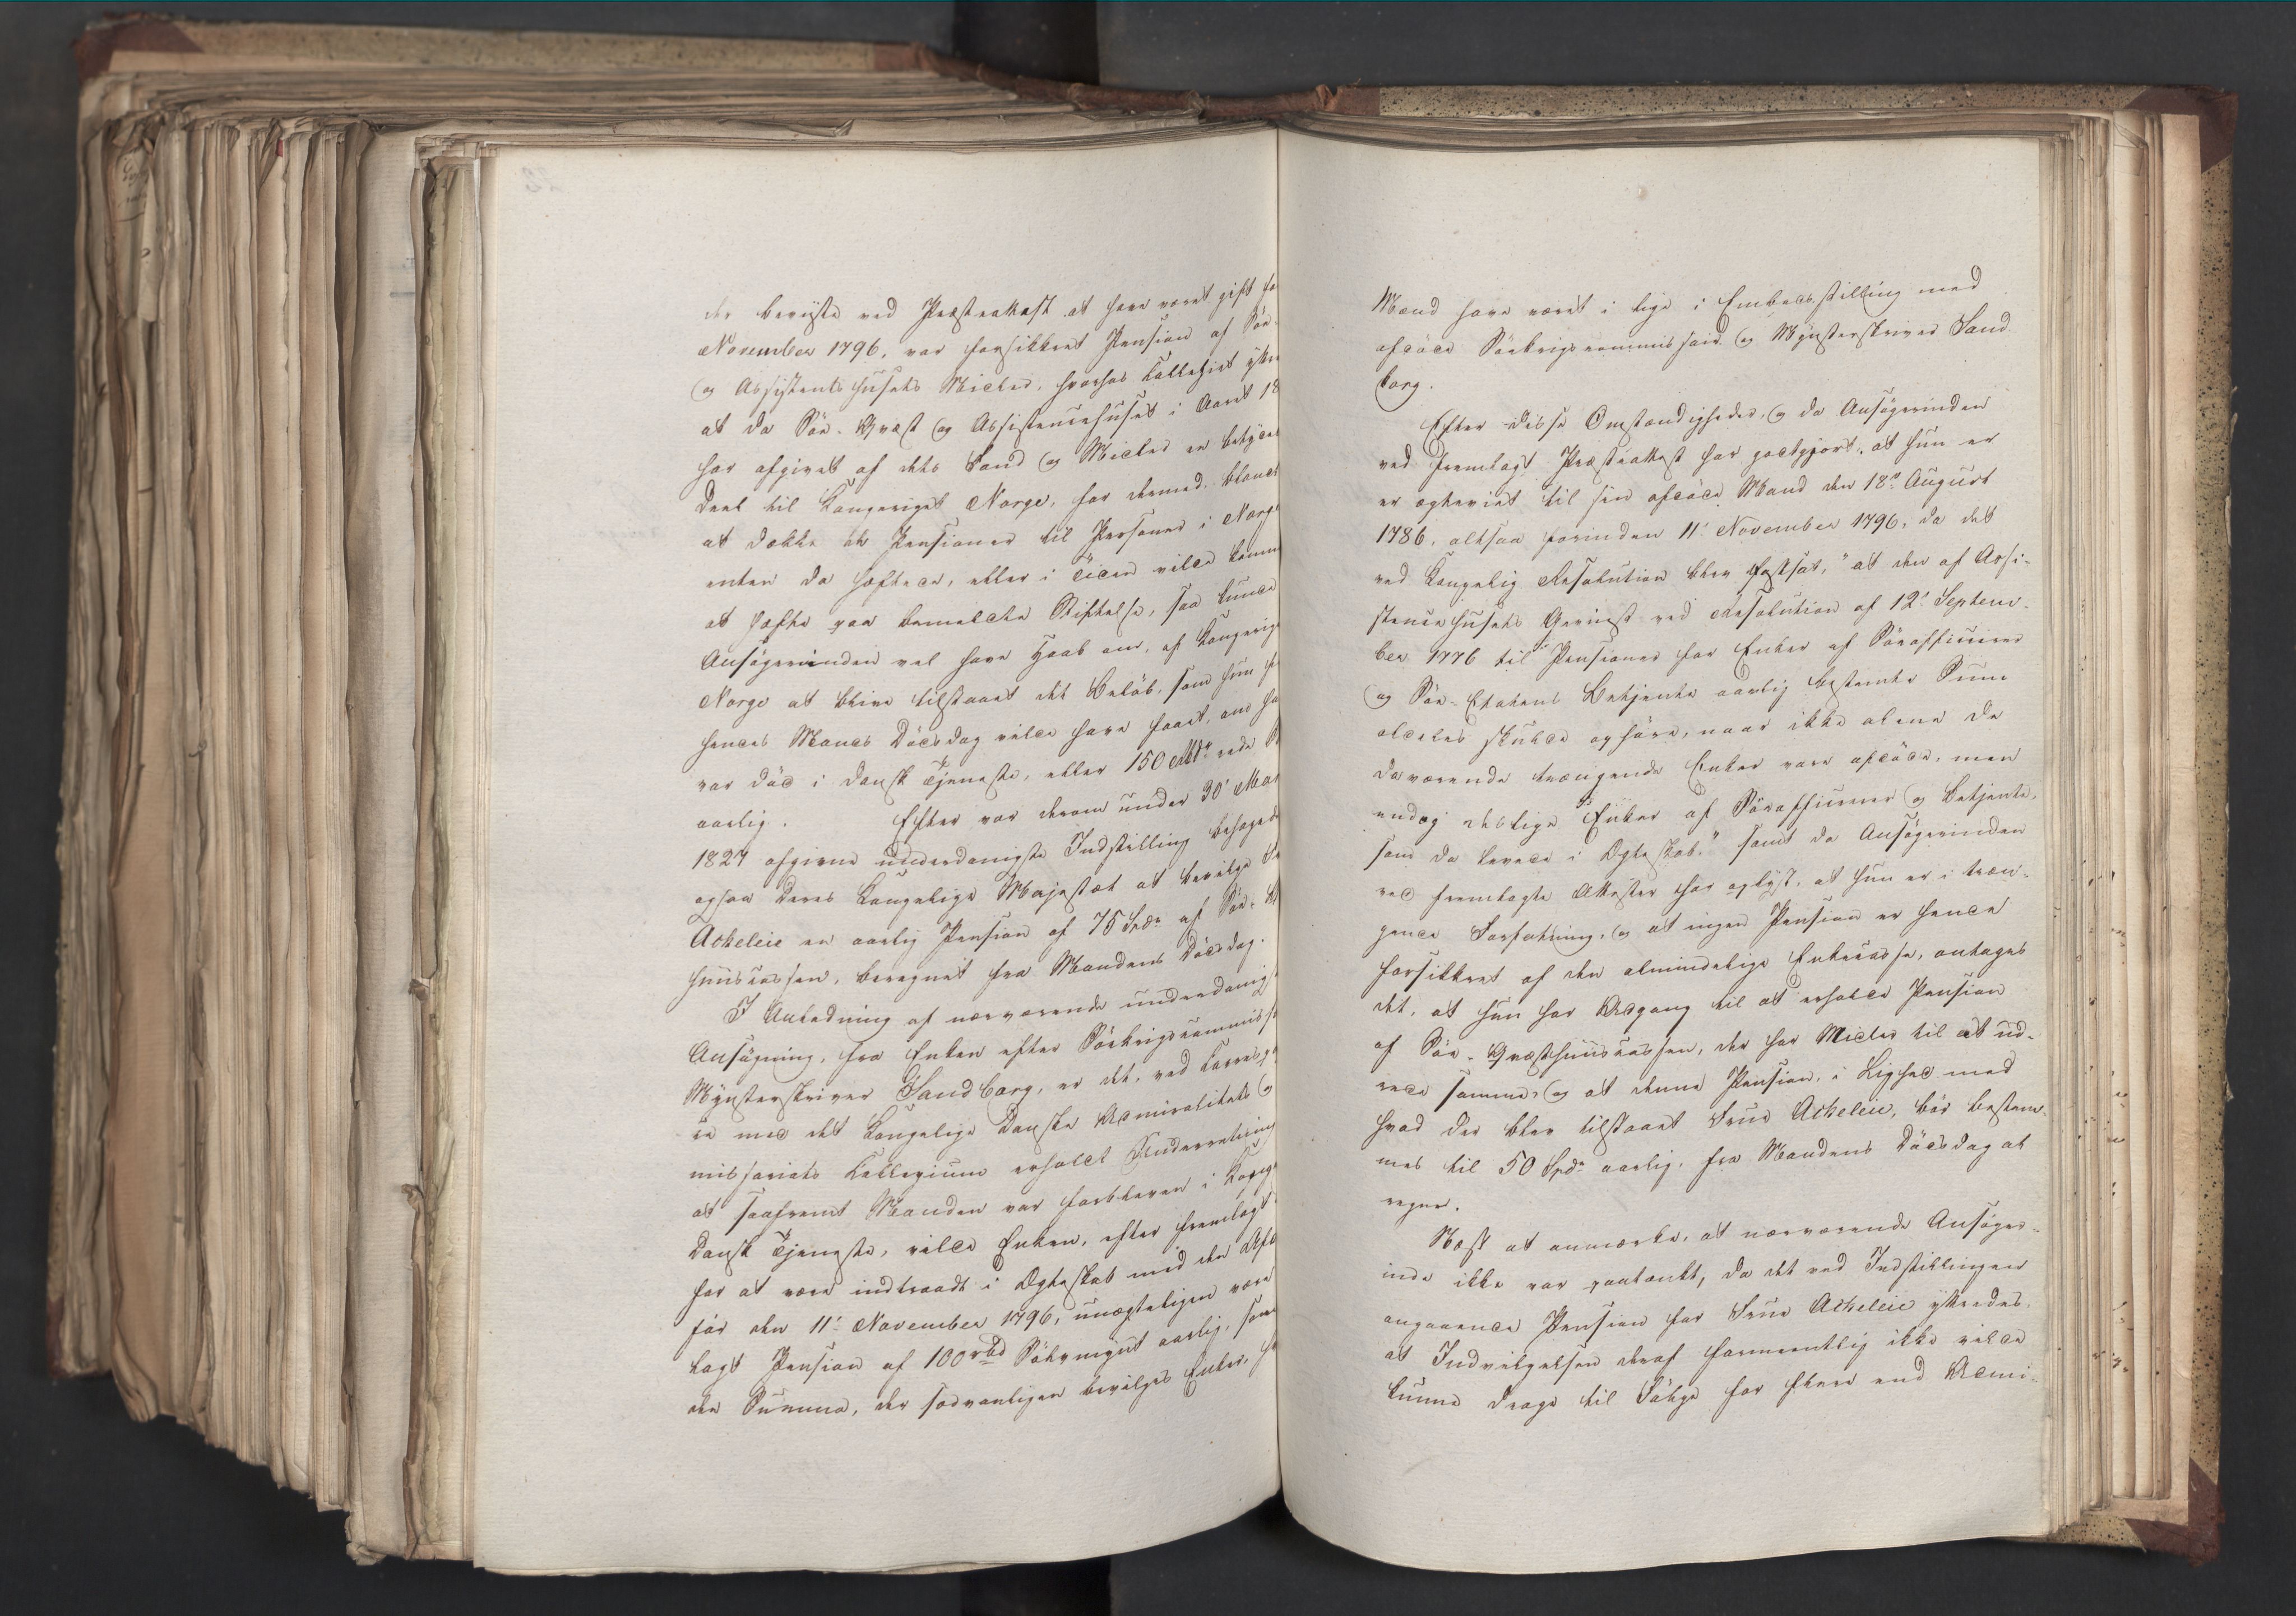 der beviste ved Præsteattest at have været gift fø
November 1796, var forsikkret Pension af Söe-
og Assistentshusets Midler, hvorhos Collegiet yttr
at da Söe-Qvæst og Assistencehuset i Aaret 18
har afgivet af dets Fond og Midler en betyde
Deel til Kongeriget Norge, for dermed blandt
at dække de Pensioner til Personer i Norge
enten da hæftede, eller i Tiden vilde komm
at hæfte paa bemeldte Stiftelse, saa kunde
Ansögerinden vel have Haab om, af Kongerig
Norge at blive tilstaaet det Belöb, som hun f
hendes Mands Dödsdag vilde have faaet, om ha
var död i dansk Tjeneste, eller 150 Rbdr rede S
aarlig. Efter vor derom under 30' Mar
1827 afgivne underdanigste Indstilling behagede
ogsaa Deres Kongelige Majestæt at bevilge Fr
Acheleie en aarlig Pension af 75 Spdr af Söe-Q
huuscassen, beregnet fra Mandens Dödsdag.
I Anledning af nærværende underdanig
Ansögning, fra Enken efter Söekrigscommiss
Mynsterskriver Sandborg, er det, ved Corresp
ce med det Kongelige Danske Admiralitets og
missariats Collegium erholdt Underretning
at saafremt Manden var forbleven i Kong
Dansk Tjeneste, vilde Enken, efter fremlagt
for at være indtraadt i Ægteskab med den Afd
för den 11' November 1796, unægteligen være
lagt Pension af 100 rbd Sölvmynt aarlig, som
den Summa, der sædvanligen bevilges Enker, h
Mænd have været i lige i Embedsstilling med
afdöde Söekrigscommissair og Mynsterskriver Sand-
borg.
Efter disse Omstændigheder, og da Ansögerinden
ved fremlagt Præsteattest har godtgjort, at hun er
er ægteviet til sin afdöde Mand den 18' August
1786, altsaa forinden 11' November 1796, da det
ved Kongelig Resolution blev fastsat, "at den af Assi-
stencehusets Gevinst ved Resolution af 12' Septem-
ber 1776 til Pensioner for Enker af Söeofficierer
og Söe-Etatens Betjente aarlig bestemte Sum
aldeles skulde ophöre, naar ikke alene de
daværende trængende Enker vare afdöde, men
endog de Enker af Söeofficierer og Betjente,
som da levede i Ægteskab." samt da Ansögerinden
ved fremlagte Attester har oplyst, at hun er i træn-
gende Forfatning, og at ingen Pension er hende
forsikkret af den almindelige Enkecasse, antages
det, at hun har Adgang til at erholde Pension
af Söe-Qvæsthuuscassen, der har Midler til at ud-
rede samme, og at denne Pension, i Lighed med
hvad der blev tilstaaet Frue Acheleie, bör bestem-
mes til 50 Spdr aarlig, fra Mandens Dödsdag at
regne.
Næst at anmærke, at nærværende Ansöger-
inde ikke var paatænkt, da det ved Indstillingen
angaaende Pension for Frue Acheleie yttredes,
at Indvilgelsen deraf formeentlig ikke vilde
kunne drage til Fölge for flere end Admi-